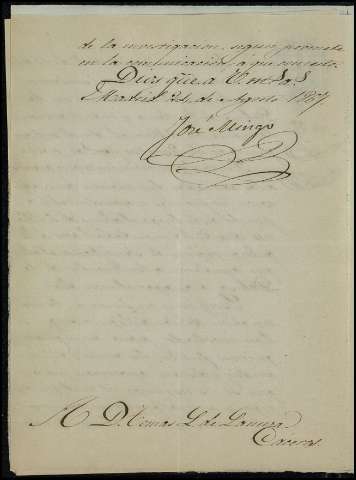 de la investigacion, segun promete
en la comunicacion, a que contesto.
Dios gūe a V. ms. as.
Madrid 24 de Agosto 1867
José Mingo
D. Tomas L. de